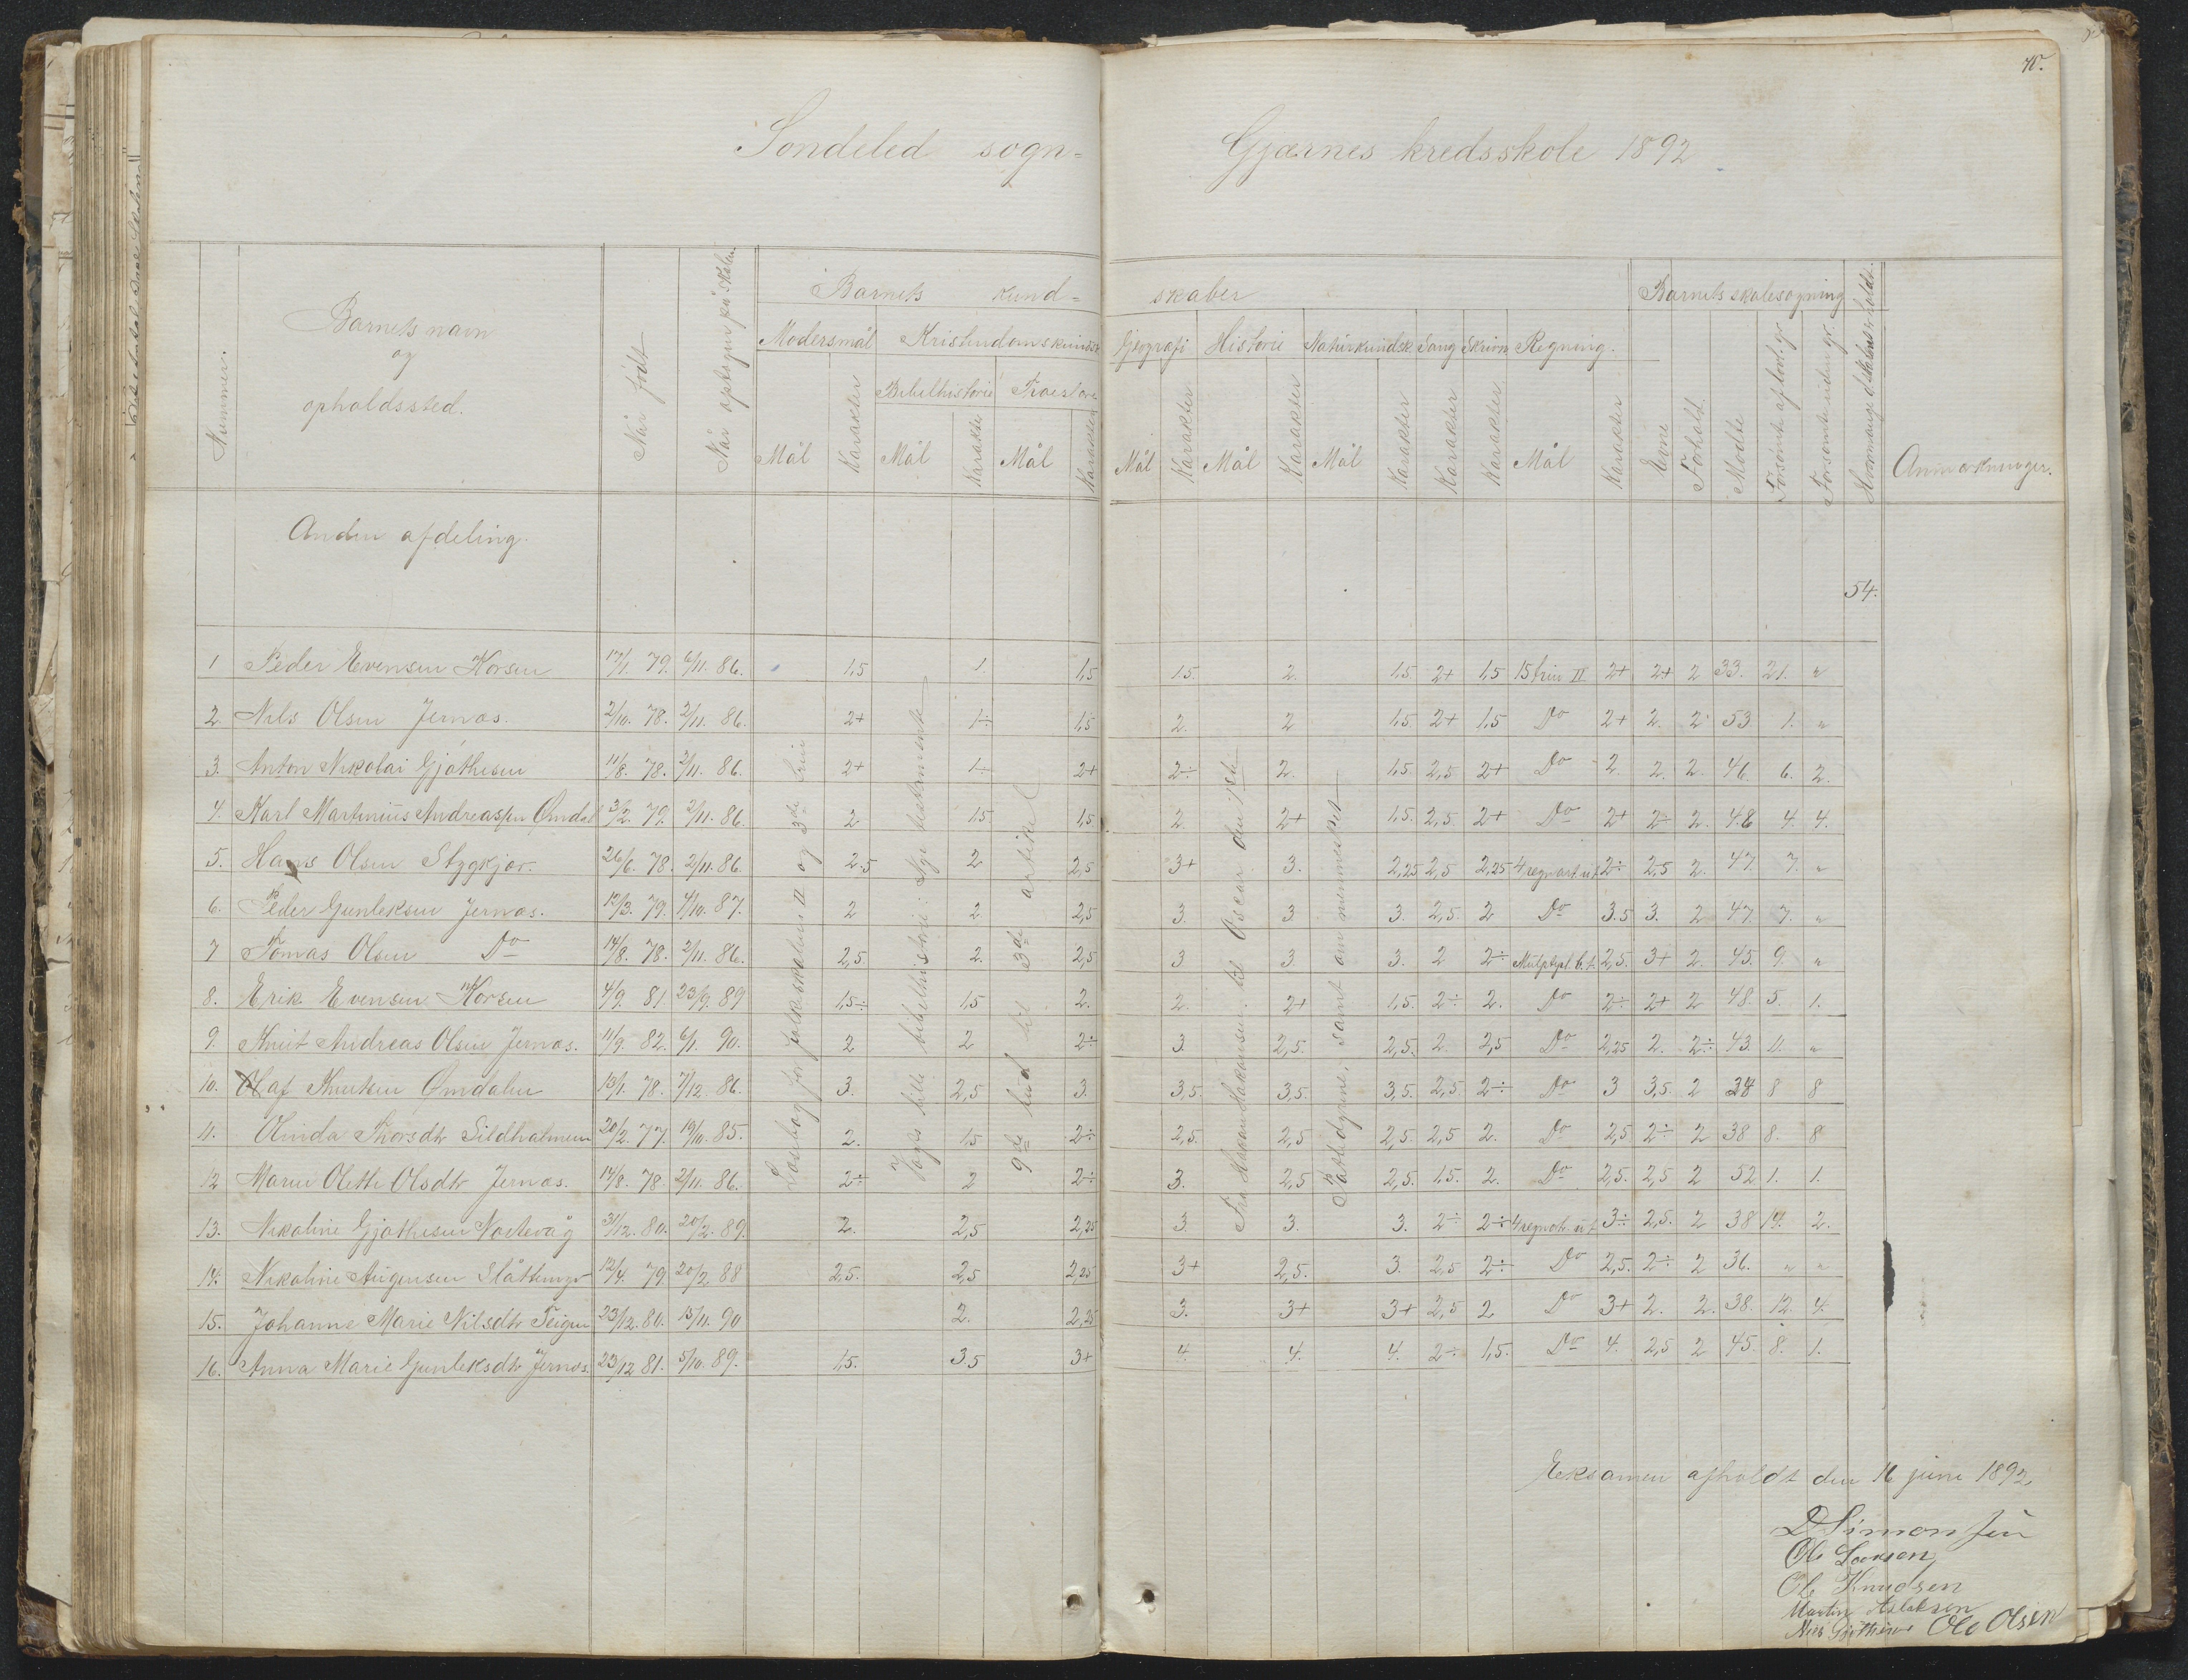 75.
Søndeled sogn= Gjærnes kredsskole 1892
Nummer.
Barnets navn
og
opholdssted.
Når født
Når optagen på skolen
Barnets kund= skaber
Barnets skolesøgning
Modersmål Kristendomskundsk.
Geografi Historie Naturkundsk. Sang Skrivn. Regning.
Bibelhistorie Troeslære
Mål Karakter Mål Karakter Mål Karakter Mål Karakter Mål Karakter Mål Karakter Karakter Karakter Mål Karakter Evne Forhold. Mødte Forsømte af lovl. gr. Forsømte uden gr. Anmærkninger.
Anden afdeling.
54.
Læsebog for folkeskolen II og 3de trin
Vogts lille bibelhistorie: Nye testamente
9de bud til 3de artikel
Fra Håkon Håkonsen til Oscar den 1ste
samt om mennesket
1 Peder Evensen Korsen 17/1. 79. 6/11. 86. 1,5 1. 1,5 1.5. 2. 1.5. 2+ 1,5 15 trin II 2+ 2+ 2 33. 21. "
2. Nils Olsen Jernæs. 2/10. 78. 2/11. 86. 2+ 1÷ 1,5 2. 2 1,5 2+ 1,5 Do 2+ 2. 2 53 1. "
3. Anton Nikolai Gjøthesen 11/8. 78. 2/11. 86. 2+ 1÷ 2+ 2÷ 2. 1,5. 2,5 2+ Do 2. 2. 2. 46. 6. 2.
4. Karl Martinius Andreassen Ømdal 3/2. 79. 2/11. 86. 2 1.5 1,5 2. 2+ 1,5. 2,5. 2+ Do 2+ 2÷ 2. 48 4. 4.
5. Hans Olsen Stygkjær. 26/6. 78. 2/11. 86. 2.5 2 2,5 3+ 3. 2,25 2,5 2,25 4 regnart. u.t. 2÷ 2,5 2. 47. 7. "
6. Peder Gunleksen Jernæs. 12/3. 79. 4/10. 87. 2 2. 2,5 3. 3 3. 2,5. 2 Do 3.5 3. 2 47. 7. "
7 Tomas Olsen Do 14/8. 78. 2/11. 86. 2,5. 2. 2,5 3 3 3. 2 2÷ Multipl. b.t. 2,5. 3+ 2. 45. 9. "
8. Erik Evensen Korsen 4/9. 81 23/9. 89 1,5÷ 1,5 2. 2. 2+ 1,5. 2÷ 2. Do 2÷ 2+ 2 48. 5. 1.
9. Knut Andreas Olsen Jernæs. 11/9. 82. 6/1. 90. 2 2 2÷ 3. 2,5. 2,5. 2. 2,5 Do 2,25 2. 2÷ 43. 11. "
10. Olaf Knutsen Ømdalen 13/1. 78. 7/12. 86. 3. 2,5 3. 3,5. 3,5. 3,5. 2,5. 2÷ Do 3 3,5. 2 38 8 8
11. Olinda Thorsdtr Sildholmen 20/2. 77. 19/10. 85. 2. 1.5 2÷ 2,5. 2,5 2,5. 2,5 2. Do 2,5 2÷ 2 38 8. 8
12 Maren Olethe Olsdtr Jernæs. 14/8. 78. 2/11. 86. 2÷ 2 2÷ 3. 2,5 2,5. 1.5. 2. Do 2,5. 2,5 2 52 1. 1.
13. Nikoline Gjøthesen Nostevåg 31/12. 80. 20/2. 89. 2. 2,5 2,25 3. 3. 3. 2÷ 2÷ 4 regnart. u.t. 3÷ 2,5. 2 38 14. 2.
14. Nikoline Augensen Slåttmyr 12/4. 79 20/2. 88 2,5. 2,5 2,25 3+ 2,5. 3. 2,5 2÷ Do 2,5. 2÷ 2 36. " "
15. Johanne Marie Nilsdtr Teigen 23/12. 80. 15/11. 90 2. 2,25 3. 3+ 3+ 2,5 2 Do 3+ 2. 2. 38. 12. 4.
16. Anna Marie Gunleksdtr Jernæs. 23/12 81. 5/10. 89. 1.5. 3.5 3+ 4. 4. 4. 2÷ 1,5. Do 4. 2,5 2 45. 8. 1.
Eksamen afholdt den 16 juni 1892,
D Simonsen
Ole Larsen
Ole Knudsen
Martin Aslaksen
Ole Olsen